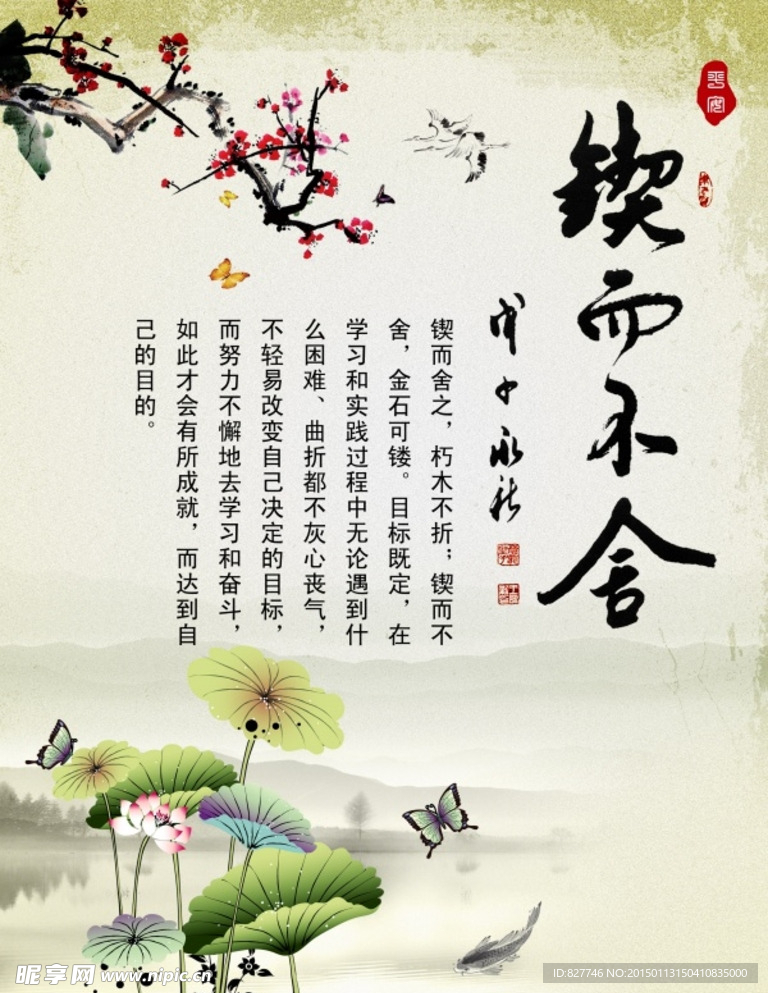 锲而不舍
戊子永新
锲而舍之，朽木不折；锲而不
舍，金石可镂。目标既定，在
学习和实践过程中无论遇到什
么困难、曲折都不灰心丧气，
不轻易改变自己决定的目标，
而努力不懈地去学习和奋斗，
如此才会有所成就，而达到自
己的目的。
昵享网 www.nipic.cn
ID:827746 NO:20150113150410835000